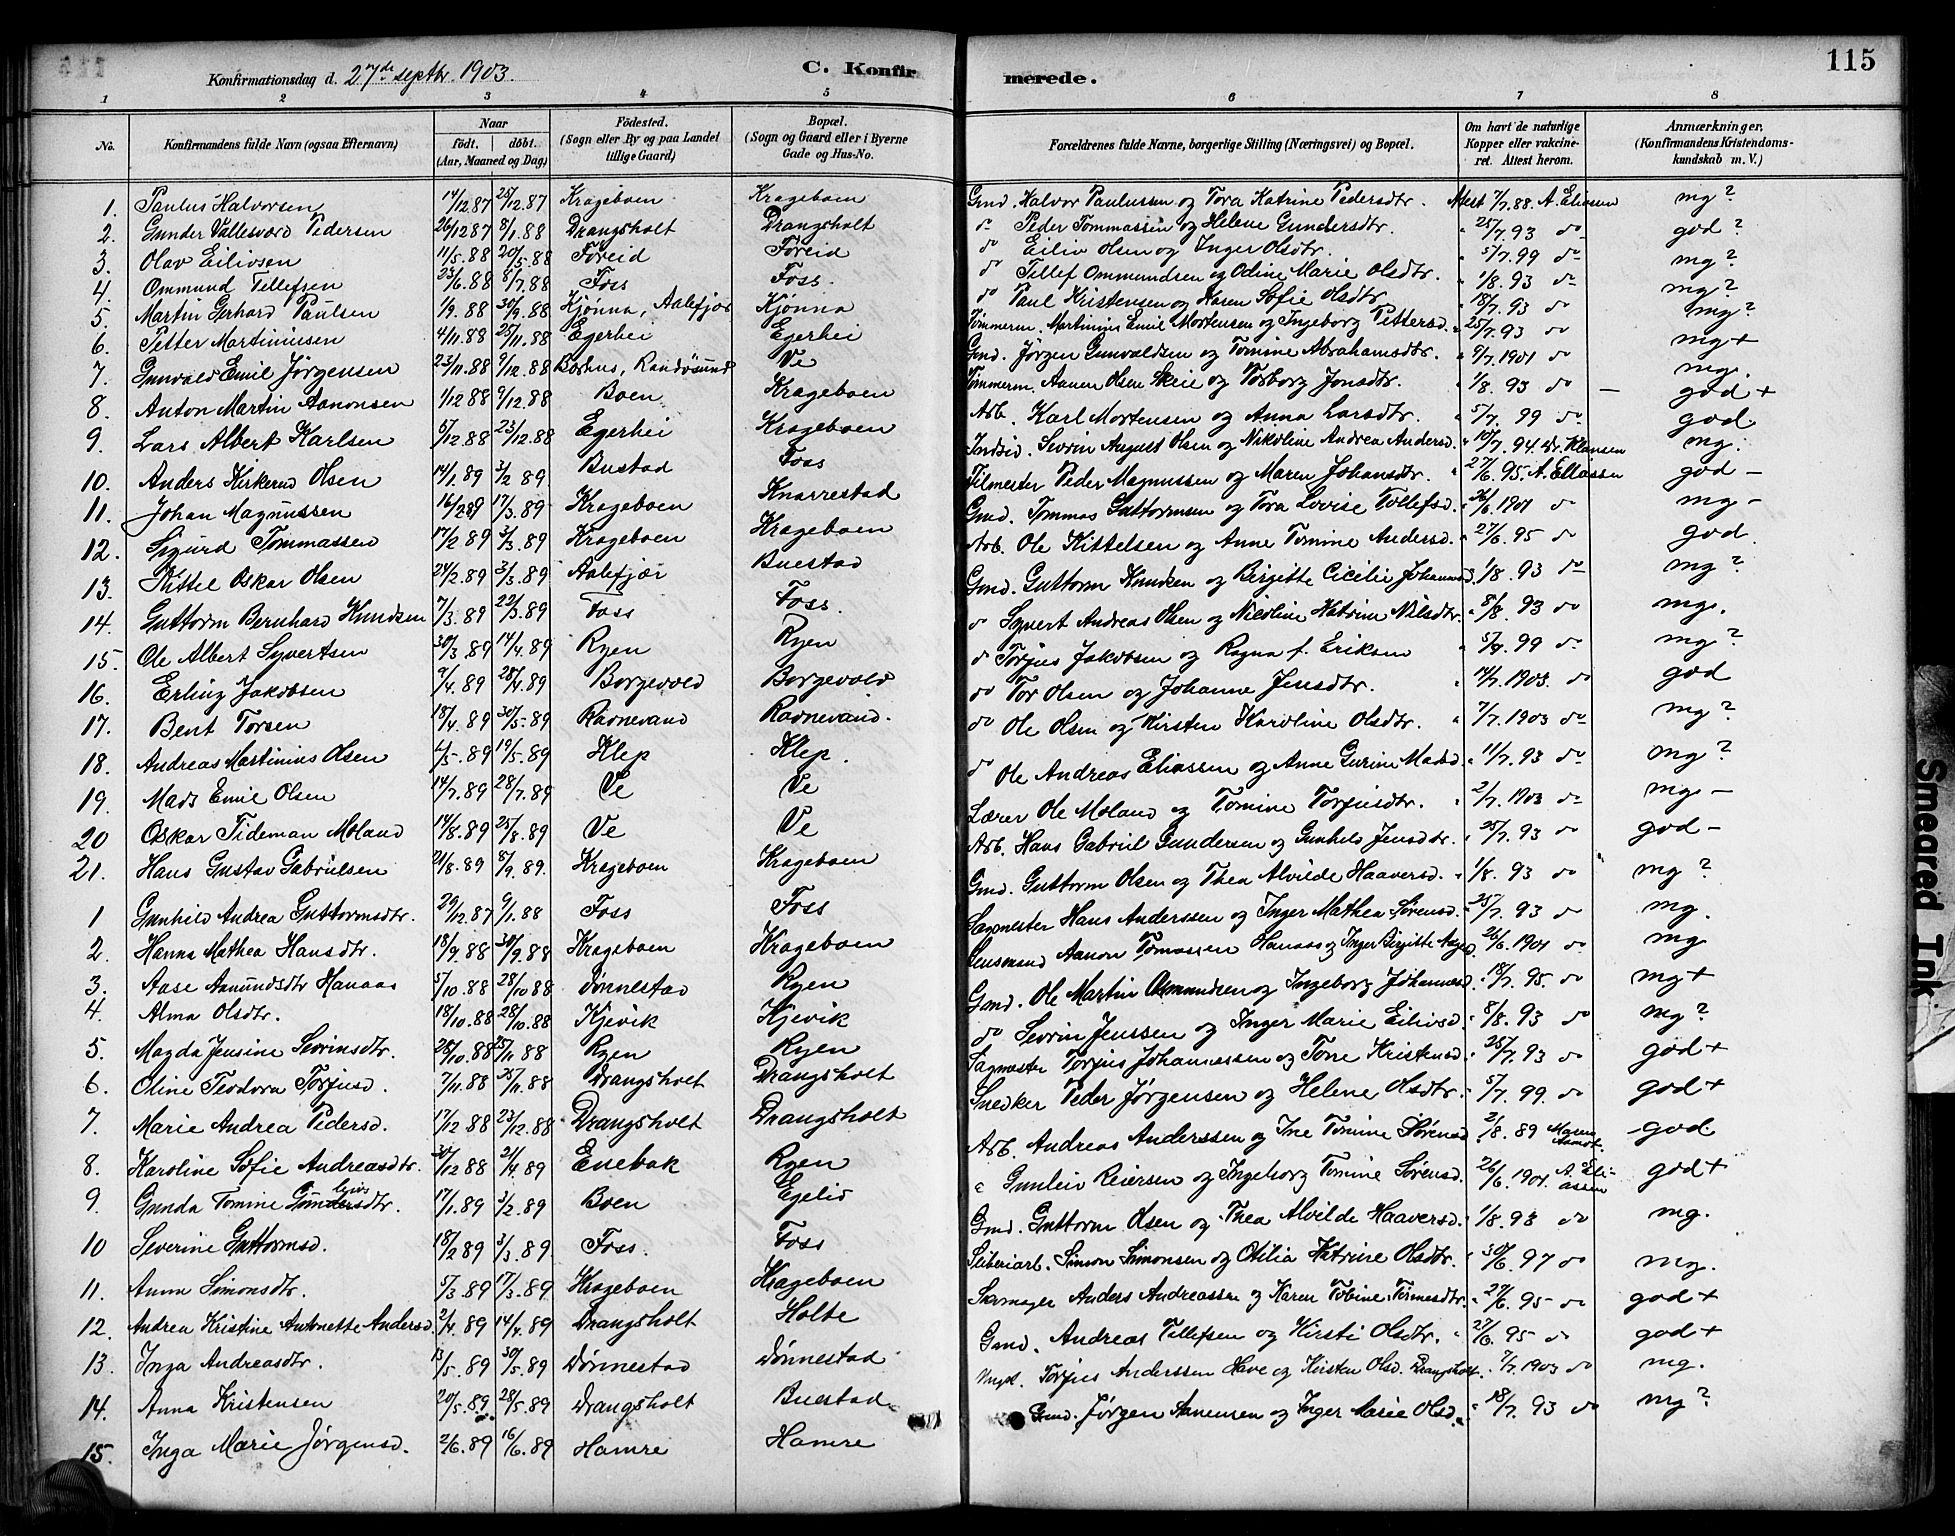 115
Konfirmationsdag d. 27de septbr. 1903.
C. Konfirmerede.
1 2 3 4 5 6 7 8
No. Konfirmandens fulde Navn (ogsaa Efternavn) Naar födt. döbt. (Aar, Maaned og Dag) Födested. (Sogn eller By og paa Landet tillige Gaard) Bopæl. (Sogn og Gaard eller i Byerne Gade og Hus-No. Forældrenes fulde Navne, borgerlige Stilling (Næringsvei) og Bopæl. Om havt de naturlige Kopper eller vakcineret. Attest herom. Anmærkninger. (Konfirmandens Kristendomskundskab m. V.)
1. Paulus Halvorsen 14/12.87 25/12.87 Krageboen Krageboen Gmd. Halvor Paulussen og Tora Katrine Pedersdtr. Attest 7/7.88. A. Eliassen mg?
2. Gunder Vallesværd Pedersen 26/12 87 8/1.88 Drangsholt Drangsholt do Peder Tommassen og Helene Gundersdtr. " 25/7.93 do god?
3. Olav Eilivsen 11/5.88 20/5.88 Foreid Foreid do Eiliv Olsen og Inger Olsdtr. " 5/7.99 do mg?
4. Ommund Tellefsen 23/6.88 8/7.88 Foss Foss. do Tellef Ommundsen og Odine Marie Olsdtr. " 1/8.93 do mg?
5. Martin Gerhard Paulsen 1/9.88 30/9.88 Kjønna, Aalefjær Kjønna do Paul Kristensen og Karen Sofie Olsdtr. " 18/7.93 do mg?
6. Petter Martiniusen 4/11.88 25/11.88 Egerhei Egerhei Tømmerm. Martinius Emil Mortensen og Ingeborg Pettersd. " 25/7.93 do mg+
7. Gunvald Emil Jørgensen 23/11.88 9/12.88 Randøsund Ve Gmd. Jørgen Gunvaldsen og Tomine Abrahamsdtr. " 9/7.1901 do mg.
8. Anton Martin Aanonsen 1/12 88 9/12.88 Boen Krageboen Tømmerm. Aanon Olsen Skeie og Torborg Jonsdtr. " 1/8.93 do god+
9. Lars Albert Karlsen 5/12.88 23/12.88 Egerhei Krageboen Arb. Karl Mortensen og Anna Larsdtr. " 5/7.99 do god
10. Anders Kirkerud Olsen 14/1.89 3/2 89. Bustad Foss Indsid. Sevrin August Olsen og Nikoline Andrea Andersd. " 10/7.94. Dr. Klausen mg.
11. Johan Magnussen 16/2 89 17/3.89 Krageboen Knarrestad Filmester Peder Magnussen og Maren Johansdtr. " 27/6.95. A. Eliassen god –
12. Sigurd Tommassen 17/2 89 3/3.89 Krageboen Krageboen Gmd. Tommas Guttormsen og Tora Lovise Tollefsd. 26/6.1901 do mg –
13. Kittel Oskar Olsen 24/2.89 3/3.89 Aalefjær Buestad Arb. Ole Kittelsen og Anne Tomine Andersd. " 27/6.95 do god.
14. Guttorm Bernhard Knudsen 7/3.89 22/3.89 Foss Foss. Gmd. Guttorm Knudsen og Birgitte Cicilie Johannesd. 1/8.93 do mg?
15. Ole Albert Syvertsen 30/3.89 14/4.89 Ryen Ryen do Syvert Andreas Olsen og Nicoline Katrine Nilsdtr. " 8/8.93 do mg.
16. Erling Jakobsen 7/4.89 28/4.89 Borgevold Borgevold do Torjus Jakobsen og Ragna f. Eriksen 5/7.99 do mg?
17. Bent Torsen 18/4.89 30/5.89 Ravnevand Ravnevand. do Tor Olsen og Johanne Jensdtr. " 14/7.1903. do god
18. Andreas Martinius Olsen 4/5.89 19/5.89 Klep Klep. do Ole Olsen og Kirsten Karoline Olsdtr. " 7/7.1903 do mg?
19. Mads Emil Olsen 14/7.89 28/7.89 Ve Ve do Ole Andreas Eliassen og Anne Gurine Madsd " 11/7.93 do mg?
20 Oskar Tideman Moland 14/8.89 25/8.89 Ve Ve Lærer Ole Moland og Tomine Torjusdtr. " 2/7.1903 do mg –
21. Hans Gustav Gabrielsen 21/8.89 8/9.89. Krageboen Krageboen Arb. Hans Gabriel Gundersen og Gunhild Jensdtr. " 25/7.93 do god –
1 Gunhild Andrea Guttormsdtr. 29/12.87 9/1.88 Foss Foss Gmd. Guttorm Olsen og Thea Alvilde Haaversd. " 1/8.93 do mg?
2. Hanna Mathea Hansdtr. 18/9.88 30/9.88 Krageboen Krageboen Sagmester Hans Anderssen og Inger Mathea Sørensd. " 25/7.93 do mg.
3. Aase Aanundsdtr Hanaas 5/10.88 28/10 88 Dønnestad Ryen Lensmand Aanon Tomassen Hanaas og Inger Birgitte 26/6.1901 do mg
4. Alma Olsdtr. 18/10.88 28/10.88 Kjevik Kjevik Gmd. Ole Martin Osmundsen og Ingeborg Johannesd. " 18/7.95. do mg+
5. Magda Jensine Sevrinsdtr. 28/10.88 25/11 88 Ryen Ryen do Sevrin Jenssen og Inger Marie Eilivsd. " 8/8.93 do mg?
6. Oline Teodora Torjusd. 7/11.88 25/11.88 Drangsholt Drangsholt Sagmester Torjus Johannessen og Tone Kristensd. " 25/7.93 do god+
7. Marie Andrea Pedersd. 17/12 88 23/12.88 Drangsholt Drangsholt Snedker Peder Jørgensen og Helene Olsdtr. " 5/7.99. do god+
8. Karoline Sofie Andreasdtr. 30/12 88 21/4.89 Enebak Ryen Arb. Andreas Anderssen og Ine Tomine Sørensd 2/8.89 god
9. Gunda Tomine Gunleivsdtr. 17/1.89 3/2.89 Boen Egelid " Gunleiv Reiersen og Ingeborg Tomine Sørensd. 26/6.1901. A. Eliassen god+
10 Severine Guttormsd. 18/2 89 3/3.89. Foss. Foss Gmd. Guttorm Olsen og Thea Alvilde Haaversd. " 1/8.93 do mg.
11. Anna Simonsdtr. 5/3.89 17/3.89 Krageboen Krageboen Simon Simonsen og Otilia Katrine Olsdtr. " 30/6.97 do mg.
12. Andrea Kristine Antonette Andersd. 2/4.89 14/4.89 Drangsholt Holte Skrmager Anders Andreassen og Karen Tobine Tønnesdtr. 27/6.95 do god+
13. Inga Andreasdtr. 13/5.89 30/5.89 Dønnestad Dønnestad Gmd. Andreas Tellefsen og Kirsti Olsdtr. " 27/6.95 do god+
14. Anna Kristensen 20/5.89. 28/5.89 Drangsholt Buestad Torjus Anderssen Have og Kirsten Olsd. Drangsholt. 7/7.1903 do mg.
15. Inga Marie Jørgensd. 2/6.89 16/6.89 Hamre Hamre Gmd. Jørgen Aanensen og Inger Marie Olsd. " 18/7.93 do mg?
Smeared Ink